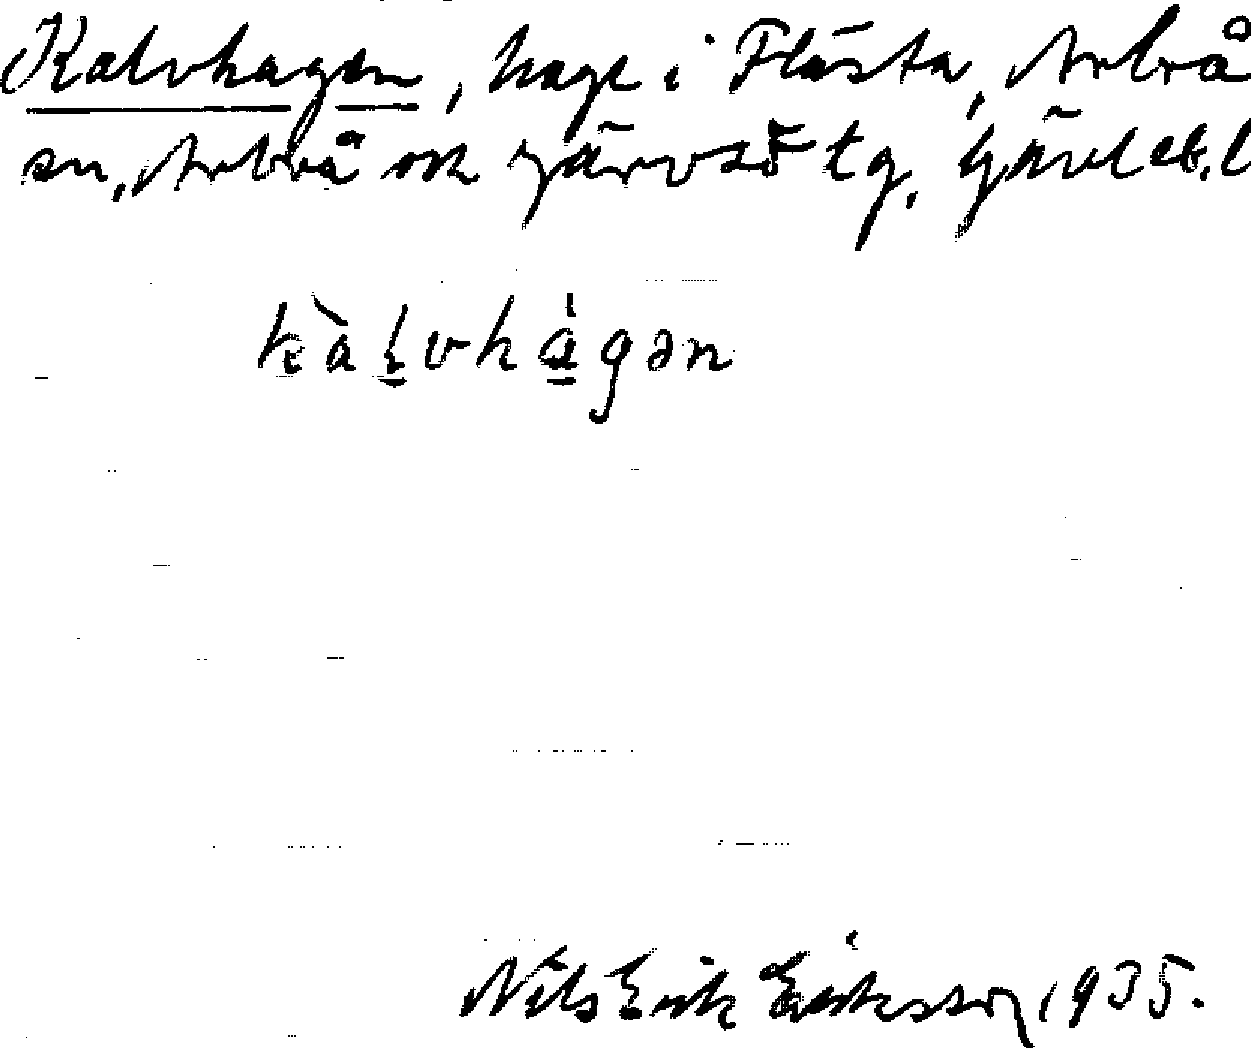 Kalvhagen, hage i Flästa, Arbrå
sn, Arbrå ock Järvsö tg, Gävleb.l
kàḷvhá̱gən
Nils Erik Eriksson, 1935.